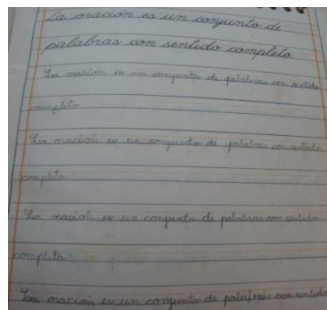 La oración es un conjunto de
palabras con sentido completo
La oración es un conjunto de palabras con sentido
completo
La oración es un conjunto de palabras con sentido
completo
La oración es un conjunto de palabras con sentido
completo
La oración es un conjunto de palabras con sentido